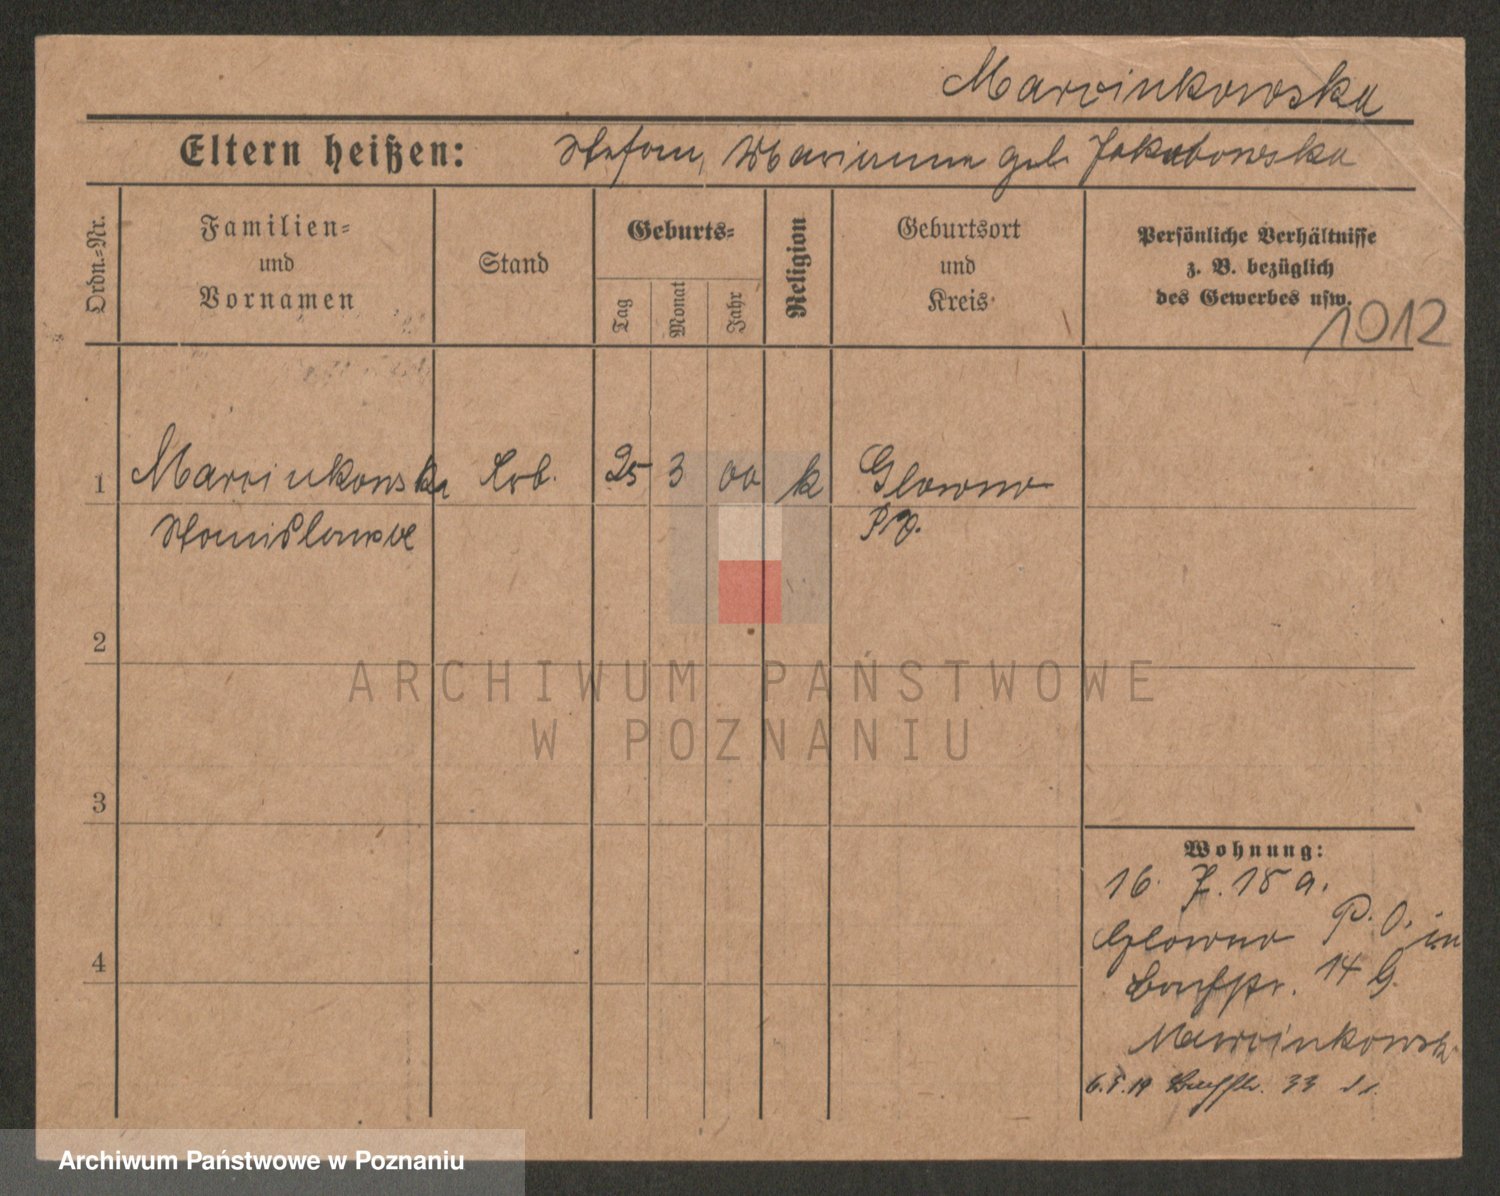 Marcinkowska
Eltern heißen: Stefan, Marianna geb. Jakubowska
Ordn.=Nr.
Familien=
und
Vornamen
Stand
Geburts=
Tag
Monat
Jahr
Religion
Geburtsort
und
Kreis
Persönliche Verhältnisse
z. B. bezüglich
des Gewerbes usw.
1012
1 Marcinkowska Arb. 25 3 00 k Glowno
Stanislawa P.O.
2
3
4
Wohnung:
16. 7. 18 a.
Glowno P.O. in
14 G.
Marcinkowska
33
ARCHIWUM PAŃSTWOWE
W POZNANIU
Archiwum Państwowe w Poznaniu